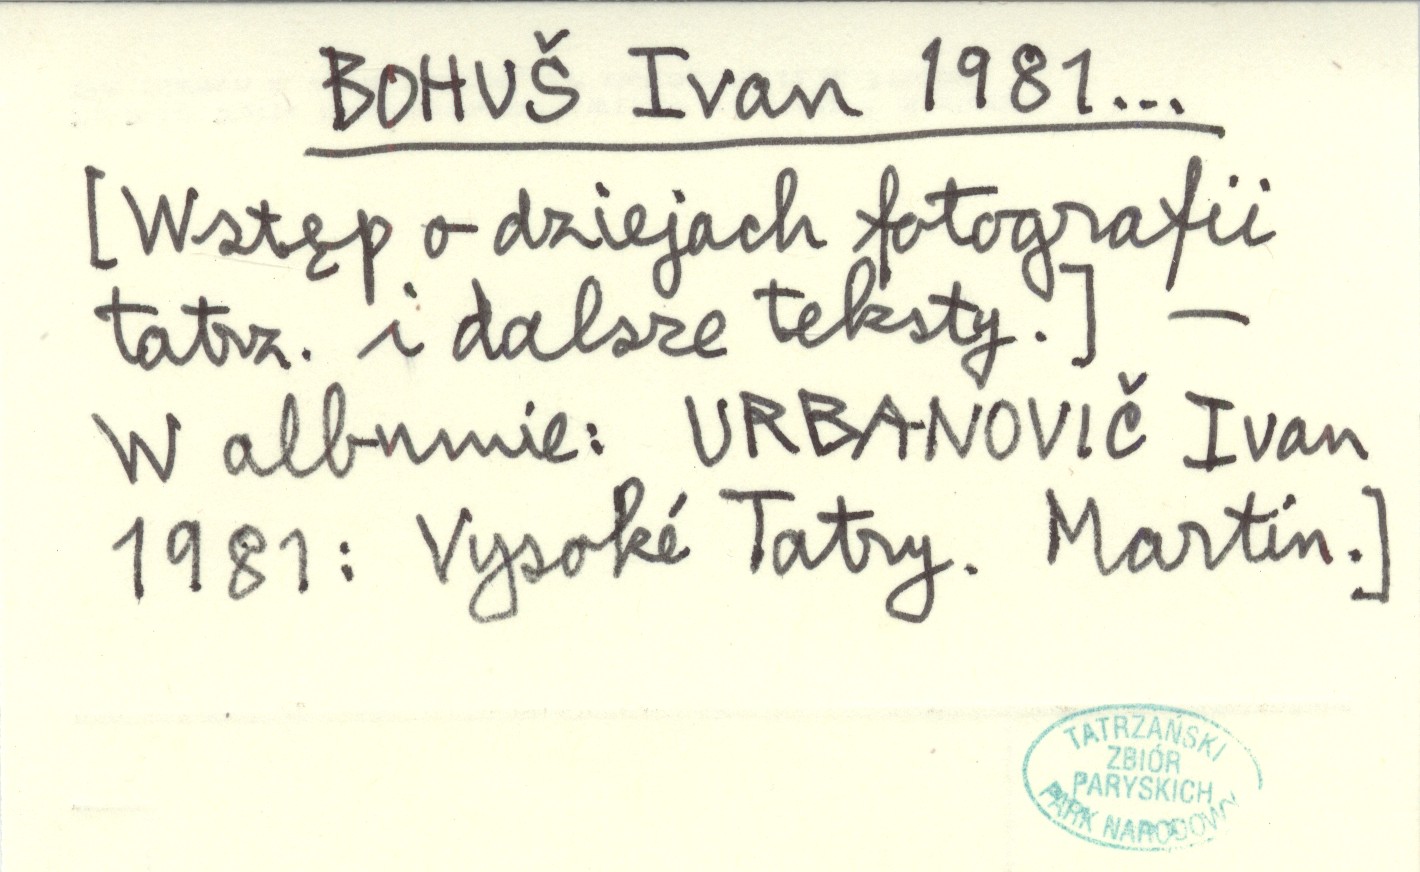 BOHUŠ Ivan 1981...
[Wstęp o dziejach fotografii
tatrz. i dalsze teksty.] —
W albumie: URBANOVIČ Ivan
1981: Vysoké Tatry. Martin.]
TATRZAŃSKI
ZBIÓR
PARYSKICH
PARK NARODOWY